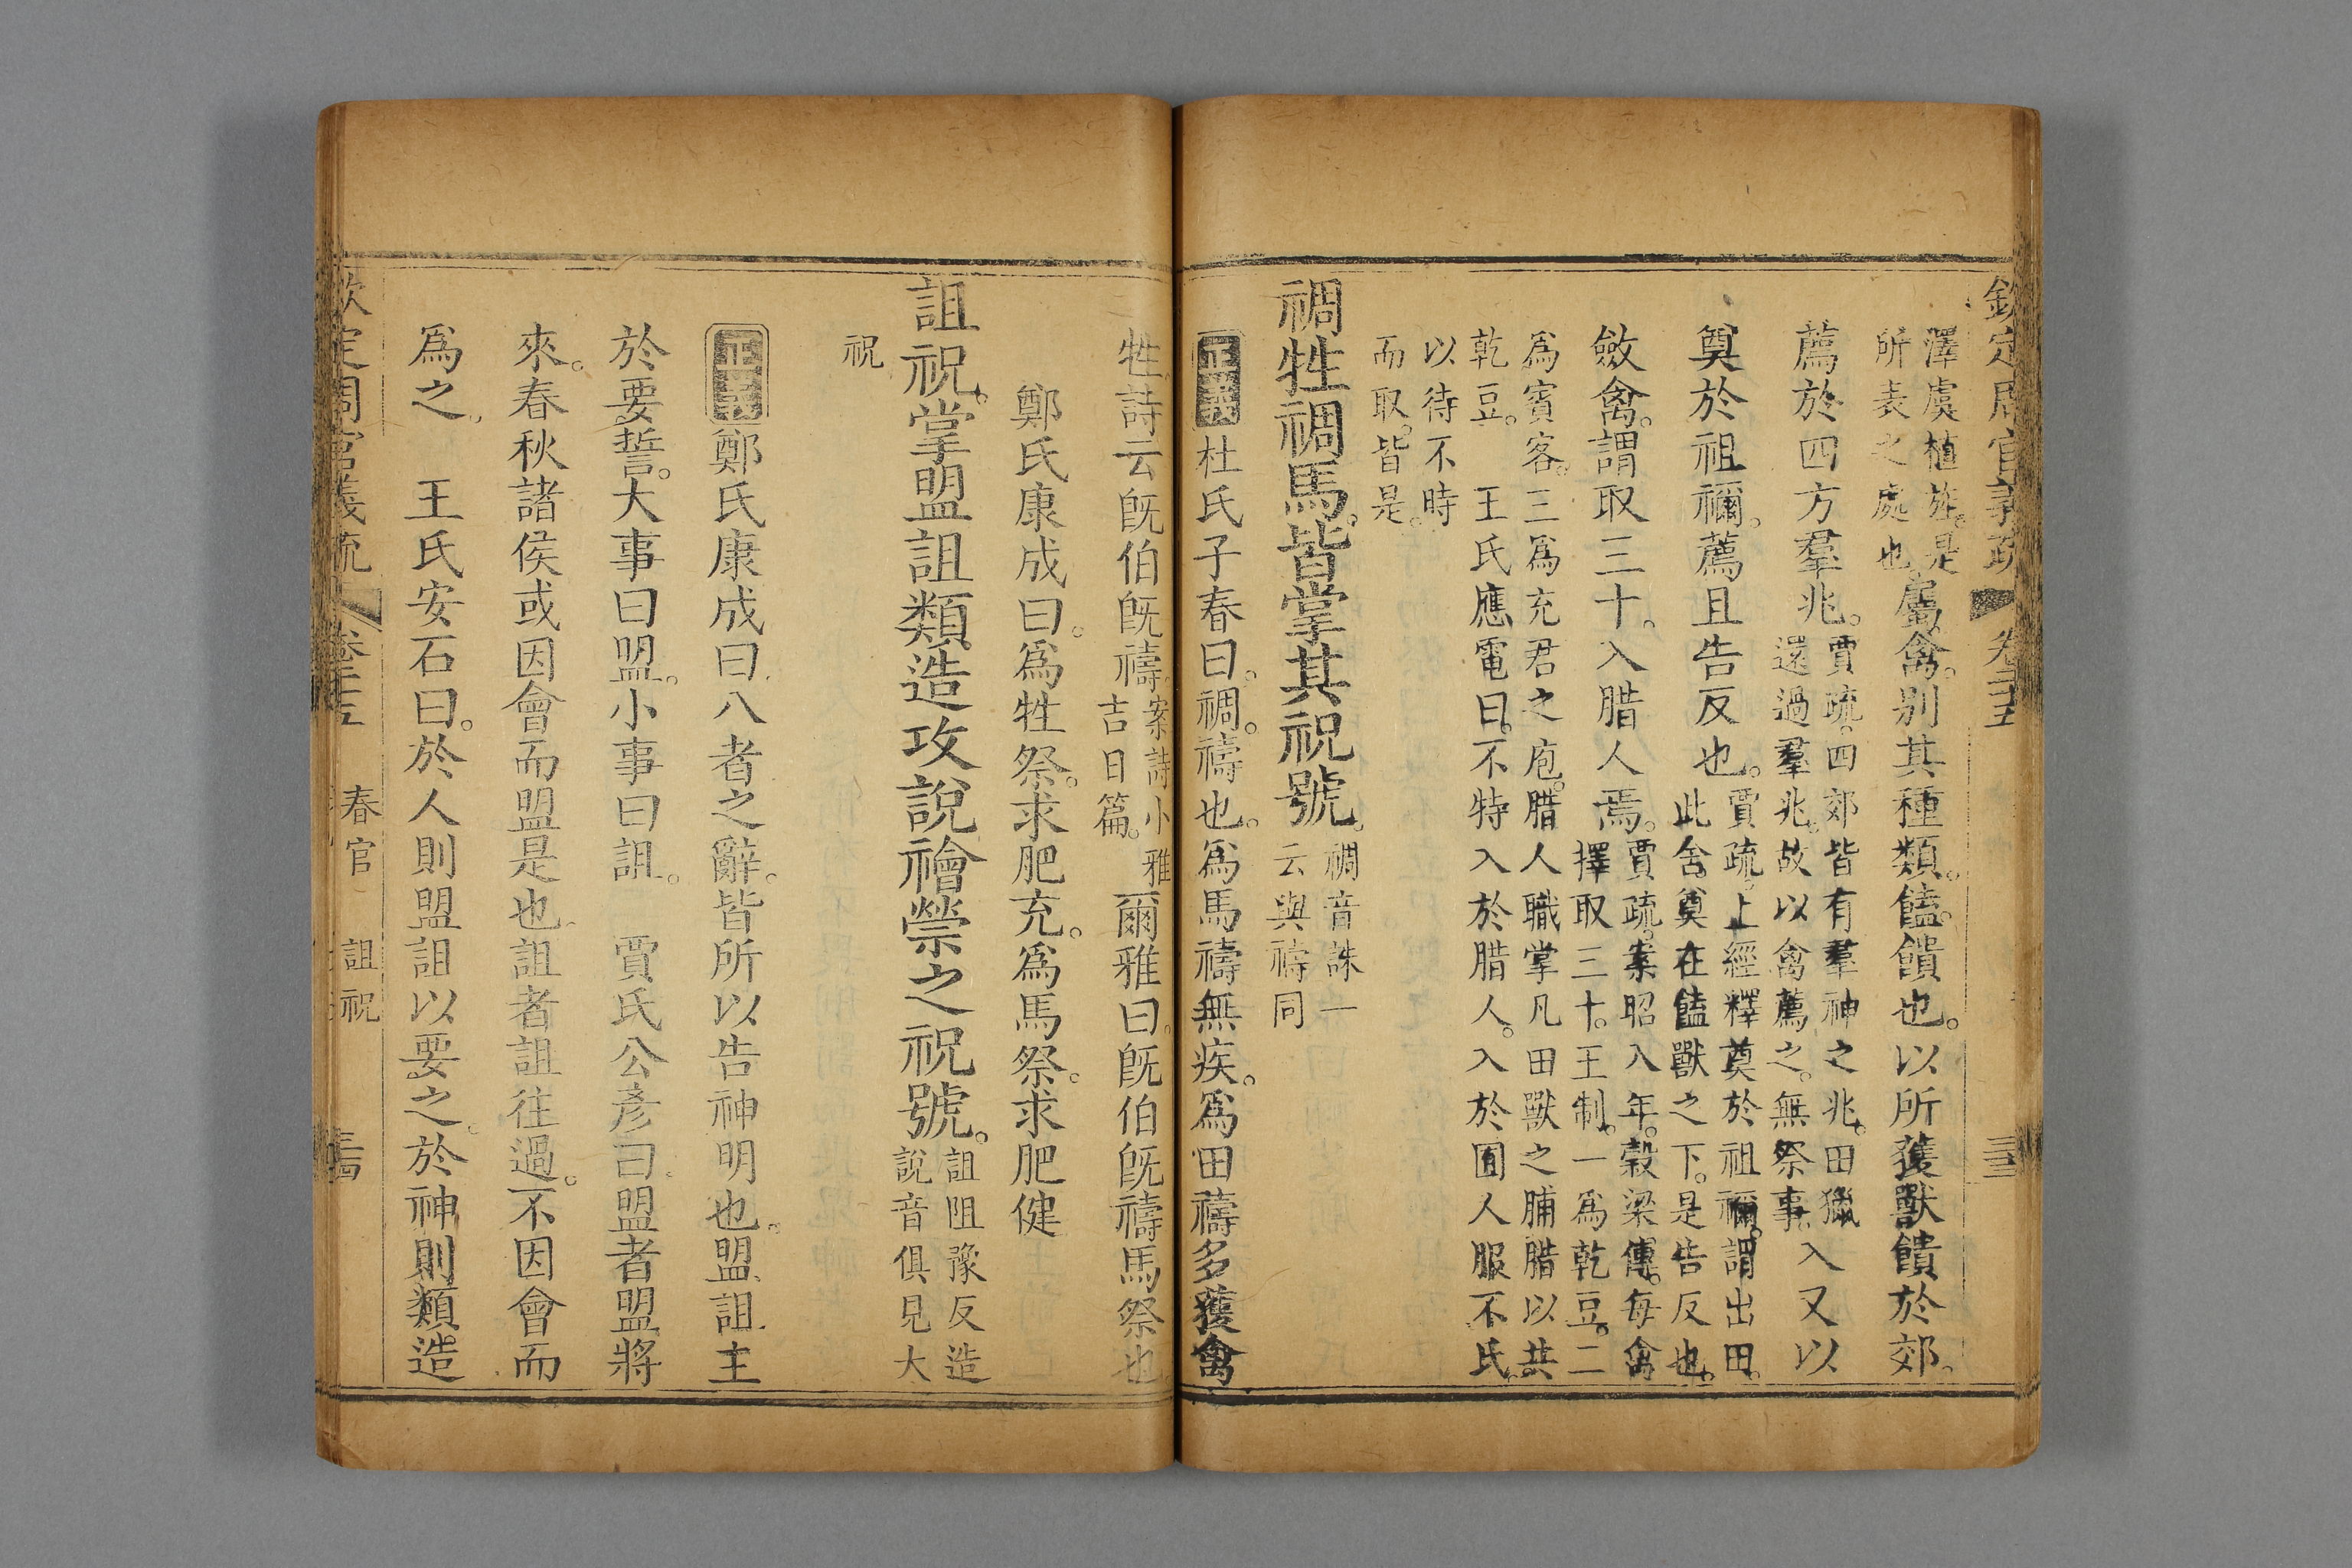 欽定周官義疏 卷二十五 三三
澤虞植旌。是
所表之處也。屬禽。別其種類。饁饋也。以所獲獸饋於郊。
薦於四方羣兆。賈疏。四郊皆有羣神之兆。田獵
還過羣兆。故以禽薦之。無祭事。入又以
奠於祖禰。薦且告反也。賈疏。上經釋奠於祖禰。謂出田。
此舍奠在饁獸之下。是告反也。
斂禽。謂取三十。入腊人焉。賈疏。案昭八年。穀梁傳。每禽
擇取三十。王制。一爲乾豆。二
爲賓客。三爲充君之庖。腊人職掌凡田獸之脯腊以共
乾豆。 王氏應電曰。不特入於腊人。入於囿人服不氏。
以待不時
而取。皆是。
禂牲禂馬。皆掌其祝號。禂音誅一
云與禱同
正義 杜氏子春曰。禂。禱也。爲馬禱無疾。爲田禱多獲禽
牲。詩云旣伯旣禱。案詩小雅
吉日篇。爾雅曰。旣伯旣禱馬祭也
鄭氏康成曰。爲牲祭。求肥充。爲馬祭。求肥健
詛祝。掌盟詛類造攻說禬禜之祝號。詛阻豫反造
說音俱見大
祝
正義 鄭氏康成曰。八者之辭。皆所以告神明也。盟詛主
於要誓。大事曰盟。小事曰詛。 賈氏公彥曰。盟者盟將
來。春秋諸侯或因會而盟是也。詛者詛往過。不因會而
爲之。 王氏安石曰。於人則盟詛以要之。於神則類造
欽定周官義疏 卷二十五 春官 詛祝 三四